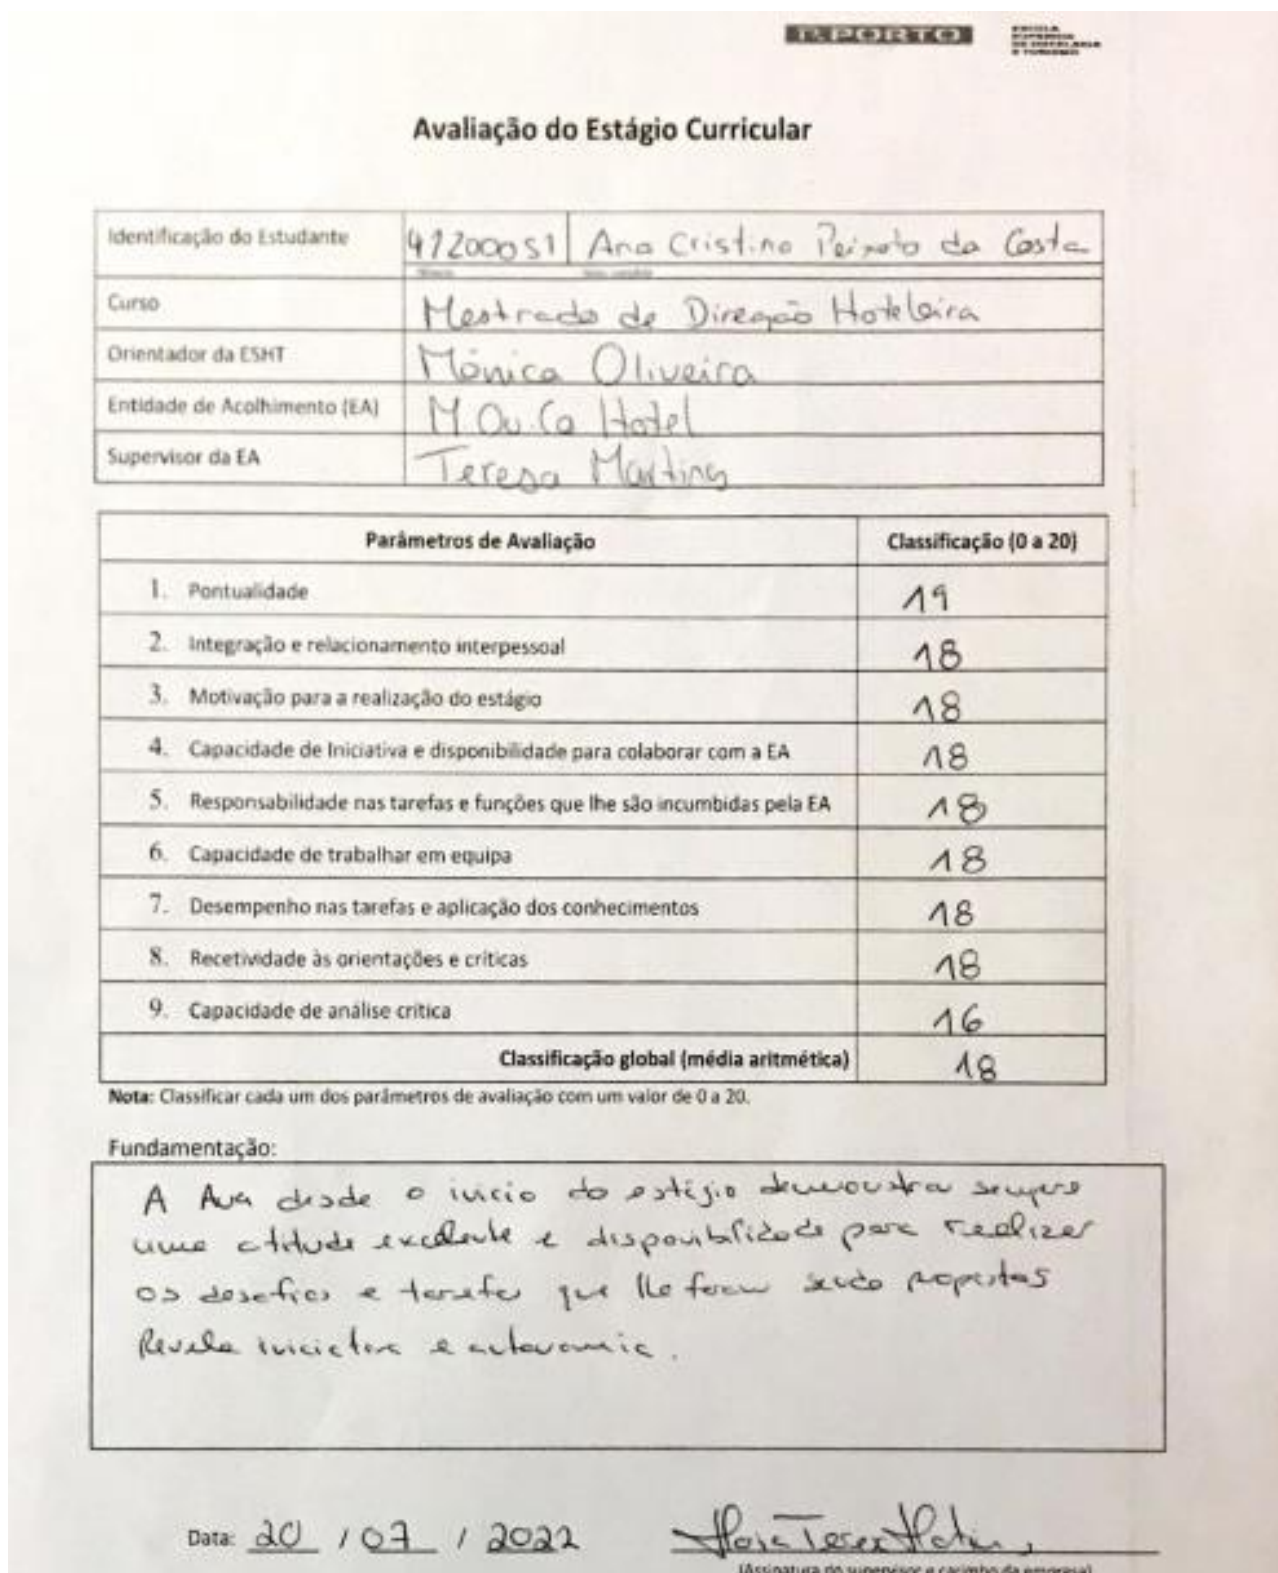 P.PORTO
ESCOLA
SUPERIOR
DE HOTELARIA
E TURISMO
Avaliação do Estágio Curricular
Identificação do Estudante 41200051 Ana Cristina Peixoto da Costa
Curso Mestrado de Direção Hoteleira
Orientador da ESHT Mónica Oliveira
Entidade de Acolhimento (EA) M.Ou.Co Hotel
Supervisor da EA Teresa Martins
Parâmetros de Avaliação Classificação (0 a 20)
1. Pontualidade 19
2. Integração e relacionamento interpessoal 18
3. Motivação para a realização do estágio 18
4. Capacidade de Iniciativa e disponibilidade para colaborar com a EA 18
5. Responsabilidade nas tarefas e funções que lhe são incumbidas pela EA 18
6. Capacidade de trabalhar em equipa 18
7. Desempenho nas tarefas e aplicação dos conhecimentos 18
8. Recetividade às orientações e críticas 18
9. Capacidade de análise crítica 16
Classificação global (média aritmética) 18
Nota: Classificar cada um dos parâmetros de avaliação com um valor de 0 a 20.
Fundamentação:
A Ana desde o início do estágio demonstrou sempre
uma atitude excelente e disponibilidade para realizar
os desafios e tarefas que lhe foram sendo propostas
Revela iniciativa e autonomia.
Data: 20 / 07 / 2022
(Assinatura do supervisor e carimbo da empresa)